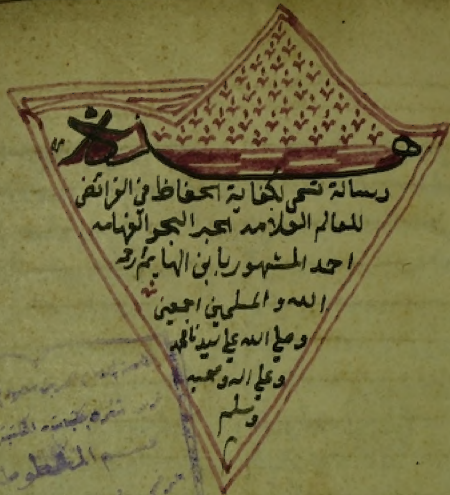 رسالة تسمى لكفاية الحفاظ في الفرائض
للعالم العلامه الحبر البحر الفهامه
احمد المشهور بابن الهايم رحمه
الله والمسلمين اجمعين
وصلي الله علي سيدنا محمد
وعلي اله وصحبه
وسلم
م
قسم المخطوطات